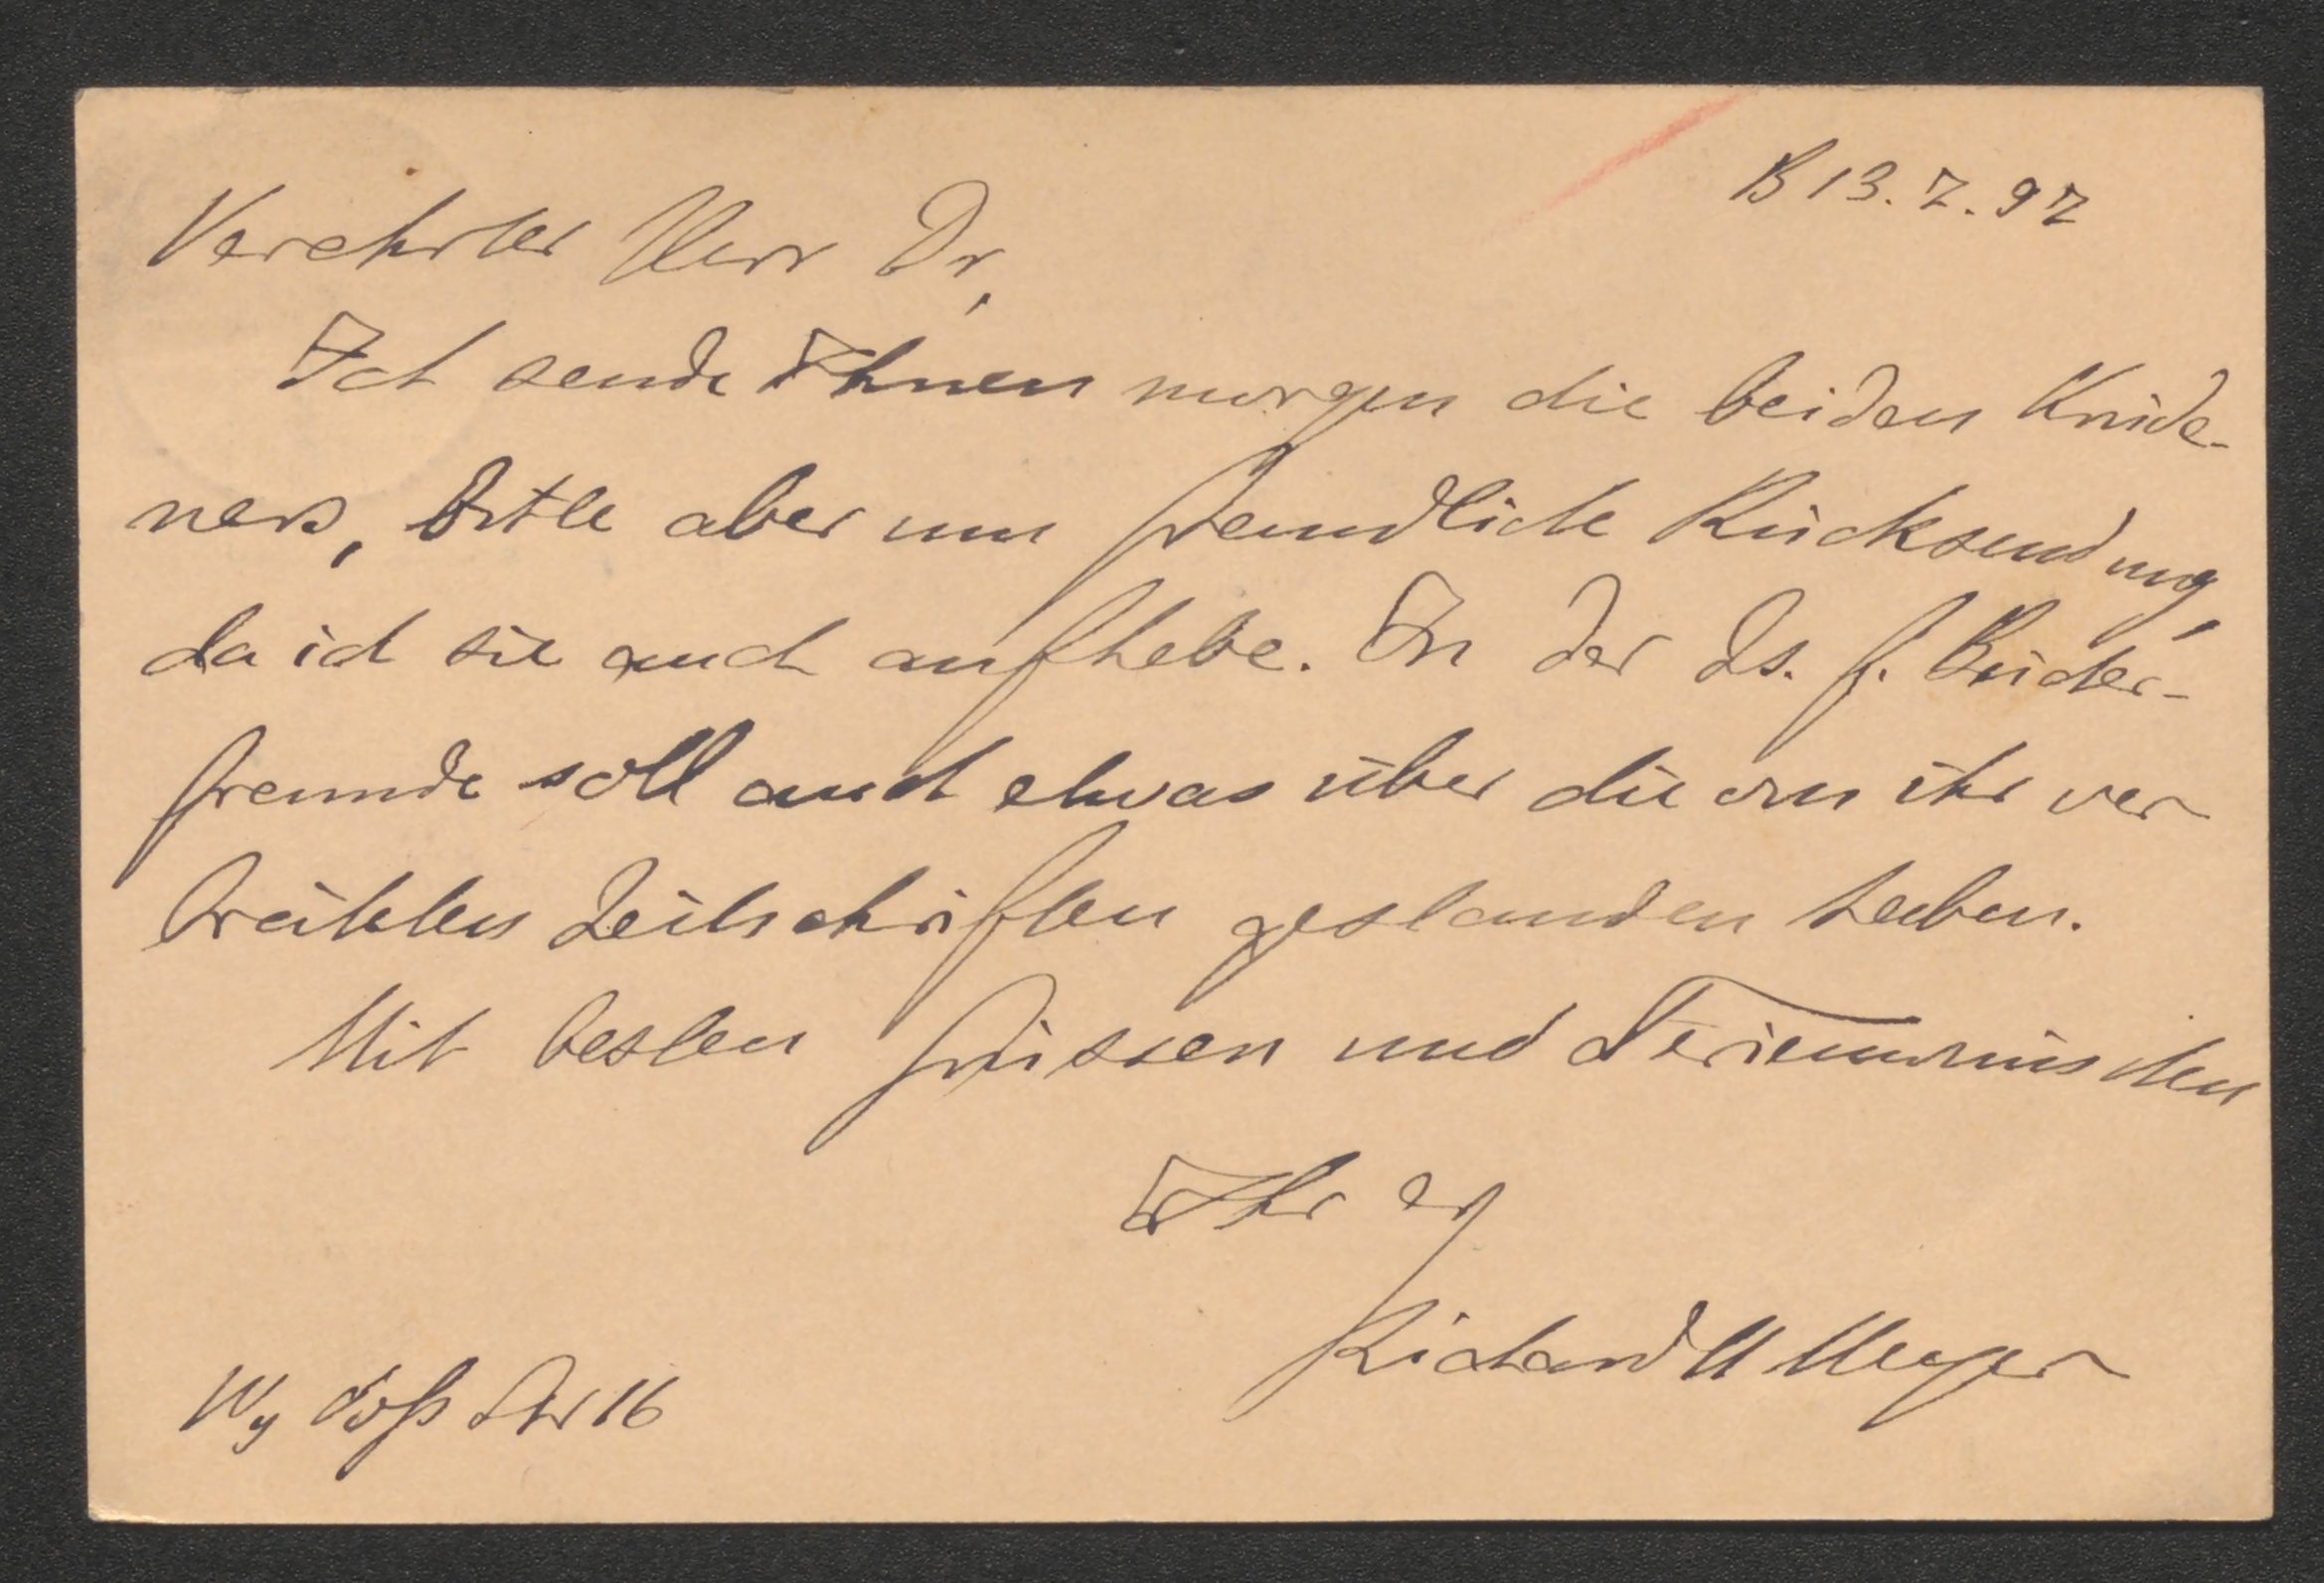 B 13.7.97
Verehrter Herr Dr,
Ich sende Ihnen morgen die beiden Krüde-
ners, bitte aber um freundliche Rücksendung,
da ich sie auch aufhebe. In der Zs. f. Bücher-
freunde soll auch etwas über die von ihr ver
breiteten Zeitschriften gestanden haben.
Mit besten Grüssen und Ferienwünschen
Ihr erg
Richard M Meyer
16